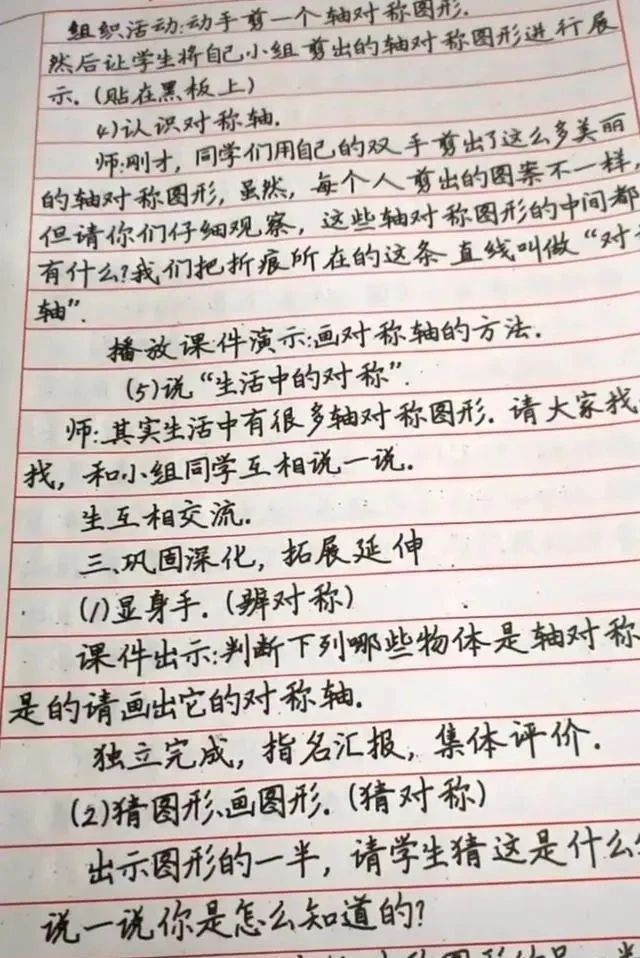 组织活动:动手剪一个轴对称图形.
然后让学生将自己小组剪出的轴对称图形进行展
示.(贴在黑板上)
4)认识对称轴.
师:刚才,同学们用自己的双手剪出了这么多美丽
的轴对称图形,虽然,每个人剪出的图案不一样,
但请你们仔细观察,这些轴对称图形的中间都
有什么?我们把折痕所在的这条直线叫做“对
轴”.
播放课件演示:画对称轴的方法.
(5)说“生活中的对称”.
师:其实生活中有很多轴对称图形.请大家找
找,和小组同学互相说一说.
生互相交流.
三、巩固深化,拓展延伸
(1)显身手.(辨对称)
课件出示:判断下列哪些物体是轴对称
是的请画出它的对称轴.
独立完成,指名汇报,集体评价.
(2)猜图形、画图形.(猜对称)
出示图形的一半,请学生猜这是什么
说一说你是怎么知道的?